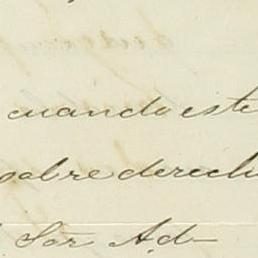 cuando este
sobre derech
Sor Ad